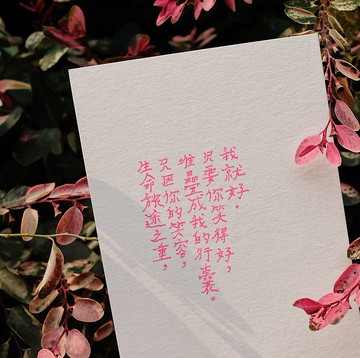 生命旅途之重，
只因你的笑容，
堆疊成我的行囊。
只要你笑得好，
我就好。